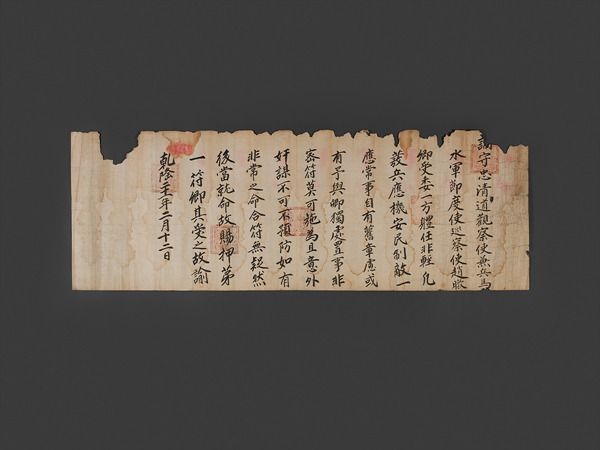 諭守忠清道觀察使兼兵馬
水軍節度使巡察使趙暾
卿受委一方體任非輕凡
發兵應機安民制敵一
應常事自有舊章慮或
有予與卿獨處置事非
密符莫可施為且意外
奸謀不可不預防如有
非常之命合符無疑然
後當就命故賜押苐
一符卿其受之故諭
乾隆二十一年二月十二日